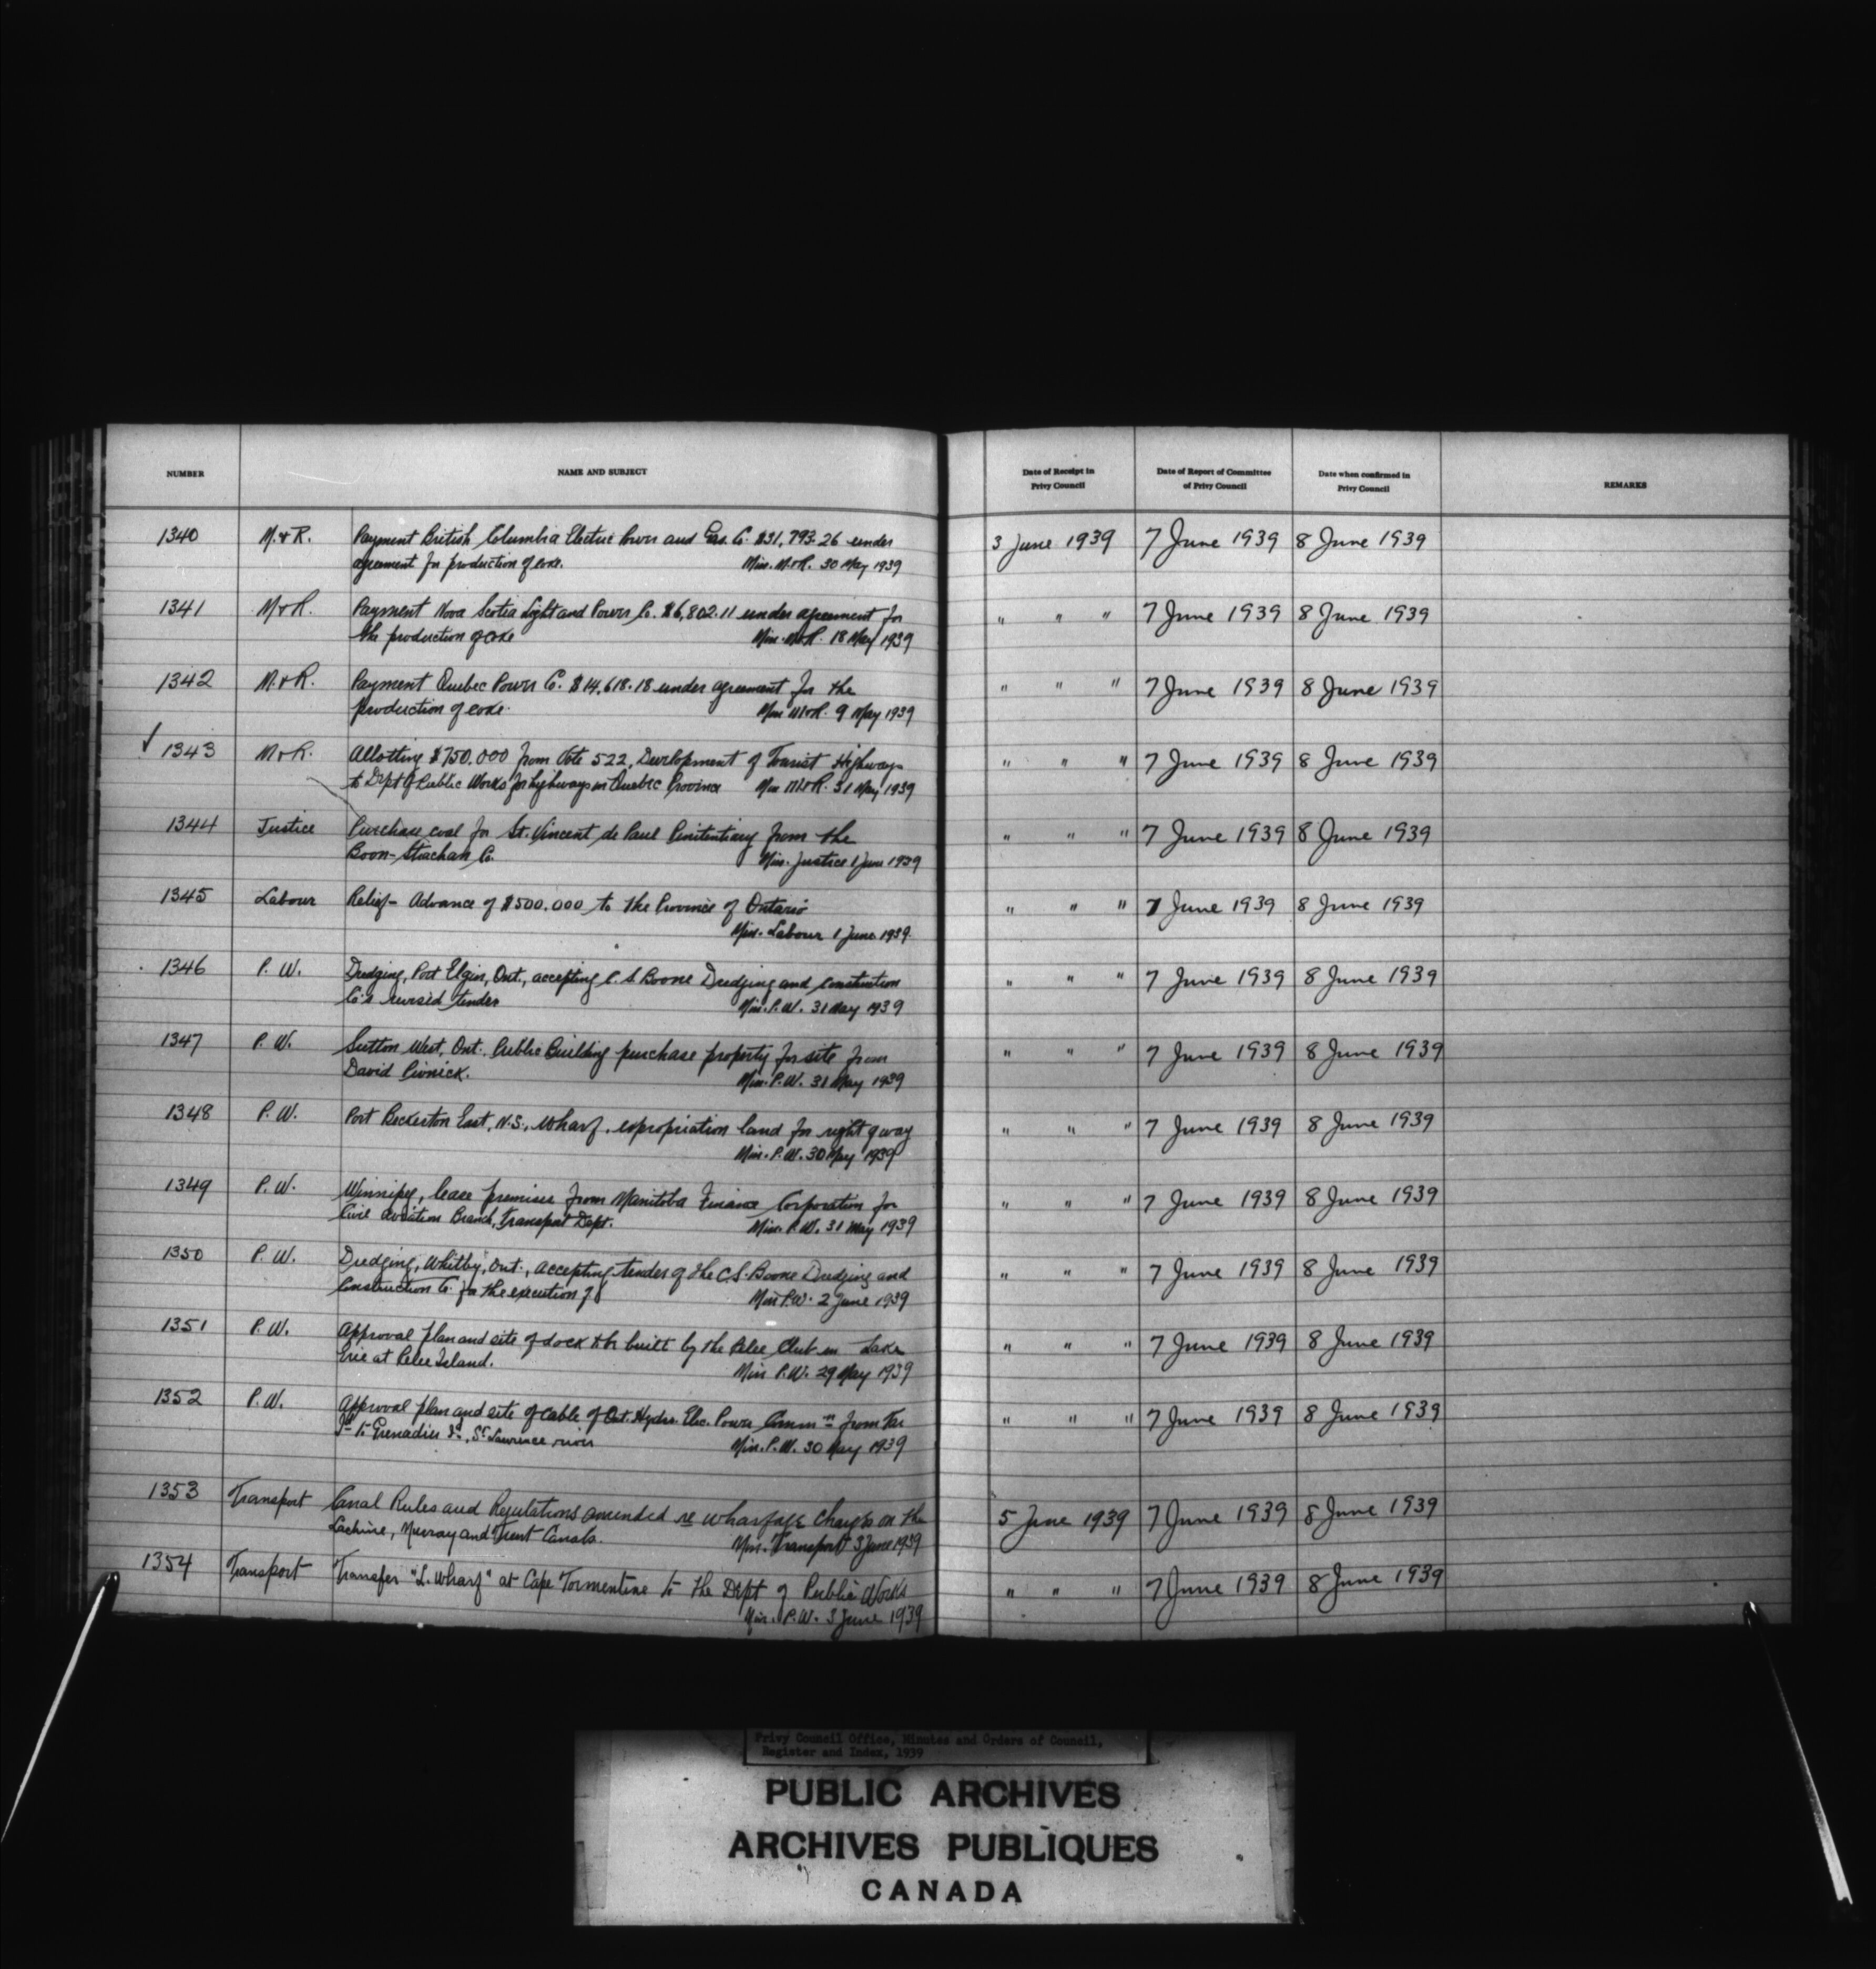 NUMBER NAME AND SUBJECT Date of Receipt in Privy Council Date of Report of Committee of Privy Council Date when confirmed in Privy Council REMARKS
1340 M. & R. Payment British Columbia Electric Power and Gas Co. $31,793.26 under 3 June 1939 7 June 1939 8 June 1939
agreement for production of coke. Min. M&R. 30 May 1939
1341 M & R. Payment Nova Scotia Light and Power Co. $6,802.11 under agreement for " " " 7 June 1939 8 June 1939
the production of coke Min. M&R. 18 May 1939
1342 M. & R. Payment Quebec Power Co. $14,618.18 under agreement for the " " " 7 June 1939 8 June 1939
production of coke. Min M&R. 9 May 1939
✓ 1343 M & R. Allotting $750.000 from Vote 522, Development of Tourist Highways " " " 7 June 1939 8 June 1939
to Dept of Public Works for highways in Quebec Province Min M&R. 31 May 1939
1344 Justice Purchase coal for St. Vincent de Paul Penitentiary from the " " " 7 June 1939 8 June 1939
Boon-Strachan Co. Min. Justice 1 June 1939
1345 Labour Relief - Advance of $500.000 to the Province of Ontario " " " 7 June 1939 8 June 1939
Min. Labour 1 June 1939.
1346 P. W. Dredging, Port Elgin, Ont., accepting C. S. Boone Dredging and Construction " " " 7 June 1939 8 June 1939
Co's revised tender Min. P.W. 31 May 1939
1347 P. W. Sutton West, Ont. Public Building purchase property for site from " " " 7 June 1939 8 June 1939
David Pivnick. Min. P.W. 31 May 1939
1348 P. W. Port Beckerton East, N.S., wharf, expropriation land for right of way " " " 7 June 1939 8 June 1939
Min. P.W. 30 May 1939
1349 P. W. Winnipeg, lease premises from Manitoba Finance Corporation for " " " 7 June 1939 8 June 1939
Civil Aviation Branch, Transport Dept. Min. P.W. 31 May 1939
1350 P. W. Dredging, Whitby, Ont., accepting tender of the C.S. Boone Dredging and " " " 7 June 1939 8 June 1939
Construction Co. for the execution of Min P.W. 2 June 1939
1351 P. W. Approval plan and site of dock to be built by the Pelee Club in Lake " " " 7 June 1939 8 June 1939
Erie at Pelee Island. Min P.W. 29 May 1939
1352 P. W. Approval plan and site of cable of Ont. Hydro Elec. Power Commn from Tar " " " 7 June 1939 8 June 1939
Id to Grenadier Id, St Lawrence river Min. P.W. 30 May 1939
1353 Transport Canal Rules and Regulations amended re wharfage charges on the 5 June 1939 7 June 1939 8 June 1939
Lachine, Murray and Trent Canals. Min. Transport 3 June 1939
1354 Transport Transfer "L. Wharf" at Cape Tormentine to the Dept of Public Works " " " 7 June 1939 8 June 1939
Min. P.W. 3 June 1939
Privy Council Office, Minutes and Orders of Council,
Register and Index, 1939
PUBLIC ARCHIVES
ARCHIVES PUBLIQUES
CANADA